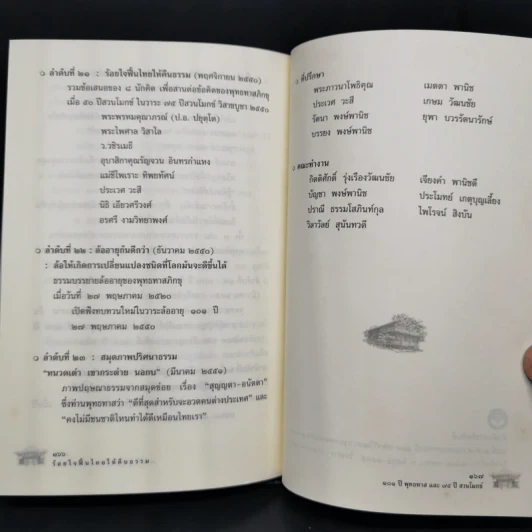 ลำดับที่ ๒๑ : ร้อยใจฟื้นไทยให้คืนธรรม (พฤศจิกายน ๒๕๕๐)
รวมข้อเสนอของ ๘ นักคิด เพื่อสานต่อข้อคิดของพุทธทาสภิกขุ
เมื่อ ๕๐ ปีสวนโมกข์ ในวาระ ๗๕ ปีสวนโมกข์ วิสาขบูชา ๒๕๕๐
พระพรหมคุณาภรณ์ (ป.อ. ปยุตฺโต)
พระไพศาล วิสาโล
ว.วชิรเมธี
อุบาสิกาคุณรัญจวน อินทรกำแหง
แม่ชีไพเราะ ทิพยทัศน์
ประเวศ วะสี
นิธิ เอียวศรีวงศ์
อรศรี งามวิทยาพงศ์
ลำดับที่ ๒๒ : ล้ออายุกันดีกว่า (ธันวาคม ๒๕๕๐)
: ล้อให้เกิดการเปลี่ยนแปลงชนิดที่โลกมันจะดีขึ้นได้
ธรรมบรรยายล้ออายุของพุทธทาสภิกขุ
เมื่อวันที่ ๒๗ พฤษภาคม ๒๕๒๐
เปิดฟังทบทวนใหม่ในวาระล้ออายุ ๑๐๑ ปี
๒๗ พฤษภาคม ๒๕๕๐
ลำดับที่ ๒๓ : สมุดภาพปริศนาธรรม
"หนวดเต่า เขากระต่าย นอกบ" (มีนาคม ๒๕๕๑)
ภาพปฤษณาธรรมจากสมุดข่อย เรื่อง "สุญญตา-อนัตตา"
ซึ่งท่านพุทธทาสว่า "ดีที่สุดสำหรับจะอวดคนต่างประเทศ" และ
"คงไม่มีชนชาติไหนทำได้ดีเหมือนไทยเรา"
๑๖๖
ร้อยใจฟื้นไทยให้คืนธรรม
ที่ปรึกษา
พระภาวนาโพธิคุณ เมตตา พานิช
ประเวศ วะสี เกษม วัฒนชัย
รัตนา พงษ์พานิช ยุพา บวรรัตนารักษ์
บรรยง พงษ์พานิช
คณะทำงาน
กิตติศักดิ์ รุ่งเรืองวัฒนชัย เจียงคำ พานิชดี
บัญชา พงษ์พานิช ประโมทย์ เกตุบุญเลี้ยง
ปราณี ธรรมโสภินท์กุล ไพโรจน์ สิงบัน
วิลาวัลย์ สุนันทวดี
๑๖๗
๑๐๑ ปี พุทธทาส และ ๗๕ ปี สวนโมกข์